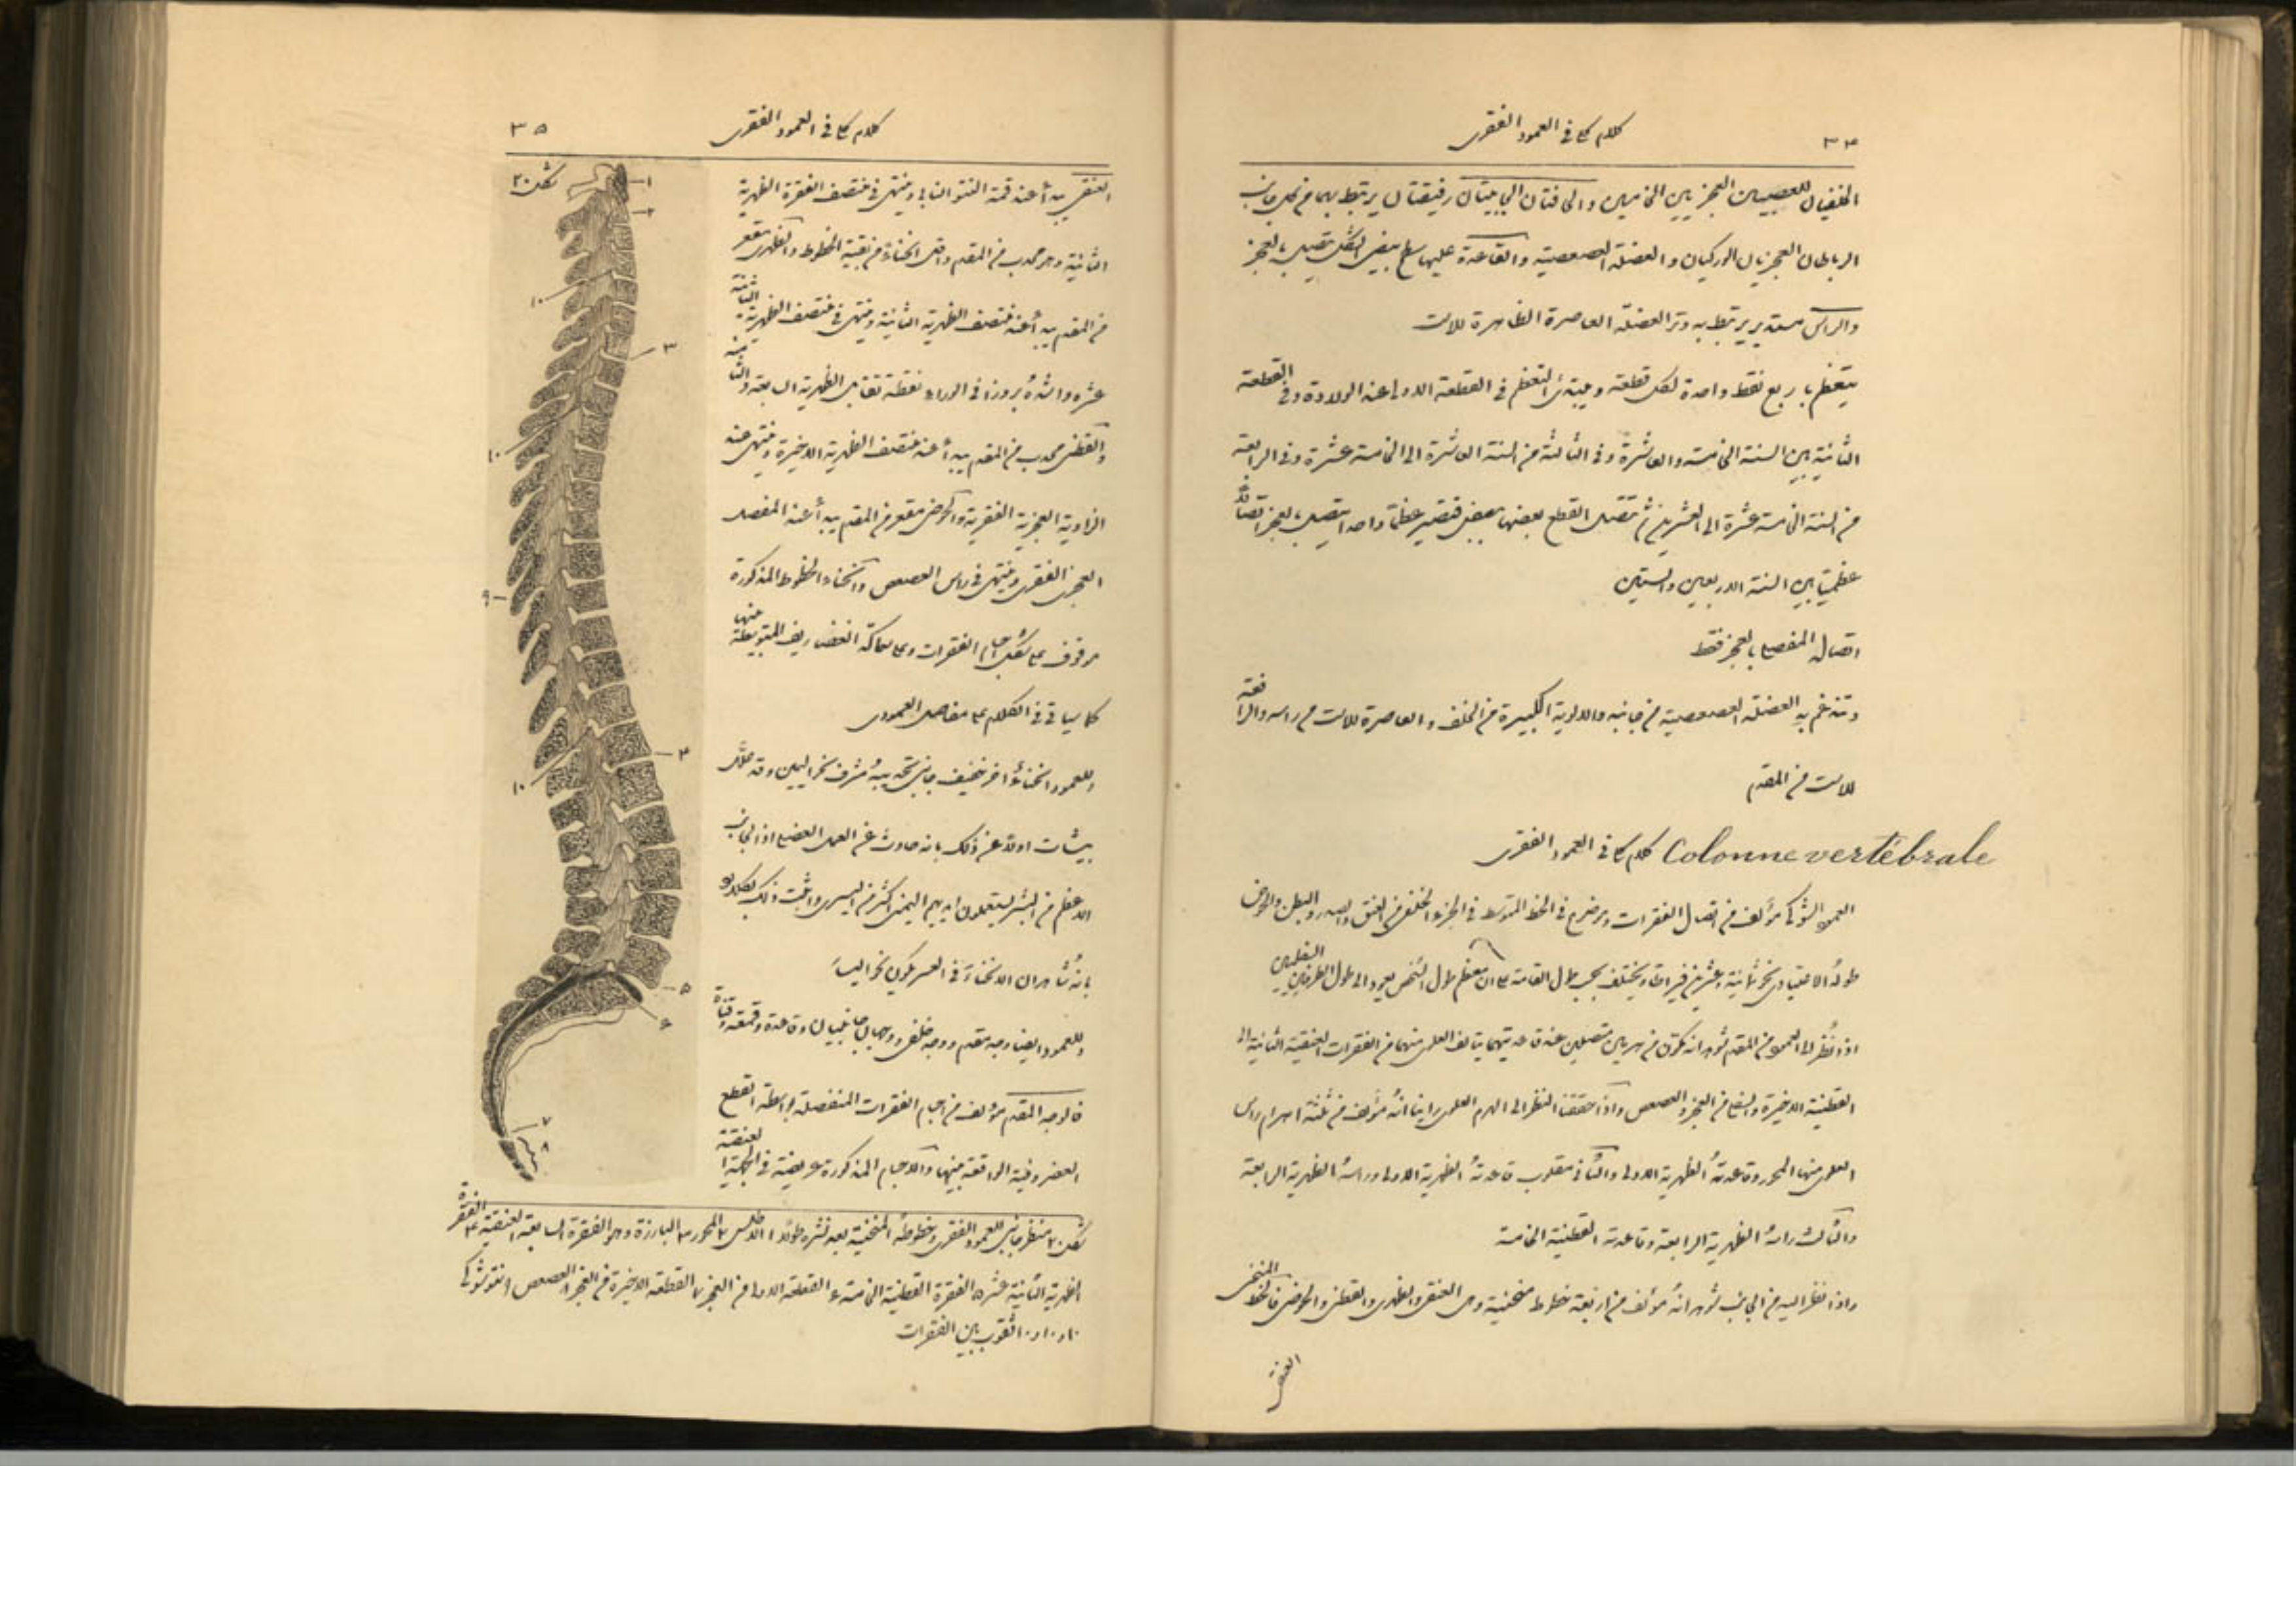 ٣٤
كلام كلى فى العمود الفقرى
الخلفيان للعصبين العجزيين الخامسين والحافتان الجانبيتان رقيقتان يرتبط بهما من كل جانب
الرباطان العجزيان الوركيان والعضلة العصعصية والقاعدة عليها سطح بيضى الشكل يتصل بالعجز
والراس مستدير يرتبط به وتر العضلة العاصرة الظاهرة للاست
يتعظم باربع نقط واحدة لكل قطعة ويبتدئ التعظم فى القطعة الاولى عند الولادة وفى القطعة
الثانية بين السنة الخامسة والعاشرة وفى الثالثة من السنة العاشرة الى الخامسة عشرة وفى الرابعة
من السنة الخامسة عشرة الى العشرين ثم تتصل القطع بعضها ببعض فتصير عظمًا واحدا يتصل بالعجز اتصالًا
عظميًا بين السنة الاربعين والستين
اتصاله المفصلى بالعجز فقط
وتندغم به العضلة العصعصية من جانبه والالوية الكبيرة من الخلف والعاصرة للاست من راسه والرافعة
للاست من المقدم
Colonne vertébrale كلام كلى فى العمود الفقرى
العمود الشوكى مؤلف من اتصال الفقرات وموضوع فى الخط المتوسط فى الجزء الخلفى من العنق والصدر والبطن والحوض
طوله الاعتيادى نحو ثمانية وعشرين قيراطًا ويختلف بحسب طول القامة على ان معظم طول الشخص يعود الى طول الطرفين السفليين
اذا نُظر الى العمود من المقدم شوهد انه مكوّن من هرمين متصلين عند قاعدتيهما يتالف العلوى منهما من الفقرات العنقية الثانية الى
القطنية الاخيرة والسفلى من العجز والعصعص واذا حققنا النظر الى الهرم العلوى راينا انه مؤلف من ثلثة اهرام راس
العلوى منها المحور وقاعدتهُ الظهرية الاولى والثانى مقلوب قاعدتهُ الظهرية الاولى وراسهُ الظهرية الرابعة
والثالث راسهُ الظهرية الرابعة وقاعدته القطنية الخامسة
واذا نظر اليه من الجانب شوهد انهُ مؤلف من اربعة خطوط منحنية وهى العنقى والظهرى والقطنى والحوضى فالخط المنحنى
العنقى
٣٥
كلام كلى فى العمود الفقرى
العنقى يبدأ عند قمة النتو النابى وينتهى فى منتصف الفقرة الظهرية
الثانية وهو محدب من المقدم واقل انحناءً من بقية الخطوط والظهرى مقعر
من المقدم يبدأ عند منتصف الظهرية الثانية وينتهى فى منتصف الظهرية الثانية
عشرة واشدهُ بروزًا فى الوراء نقطة تقابل الظهرية السابعة والثامنة
والقطنى محدب من المقدم يبدأ عند منتصف الظهرية الاخيرة وينتهى عند
الزاوية العجزية الفقرية والحوضى مقعر من المقدم يبدأ عند المفصل
العجزى الفقرى وينتهى فى راس العصعص وانحناء الخطوط المذكورة
موقوف على شكل اجسام الفقرات وعلى سماكة الغضاريف المتوسطة منها
كما سياتى فى الكلام على مفاصل العمود
وللعمود انحناءٌ اخر خفيف جانبى تحديبهُ مشرف نحو اليمين وقد علّل
بيشات اولًا عن ذلك بانه حادث عن العمل العضلى اذ الجانب
الاعظم من البشر يستعملون ايديهم اليمنى اكثر من اليسرى واثبت ذلك كلادو
بانهُ شاهد ان الانحناءَ فى العسر يكون نحو اليسار
وللعمود ايضا وجه مقدم ووجه خلفى ووجهان جانبيان وقاعدة وقمة وقناة
فالوجه المقدم مؤلف من اجسام الفقرات المنفصلة بواسطة القطع
الغضروفية الواقعة بينها والاجسام المذكورة عريضة فى الجهة العنقية
شكل ٢٠
١
٢
١٠
٣
١٠
٩
٤
١٠
٥
٦
٧
٨
شكل ٢٠ منظر جانبى للعمود الفقرى وخطوطه المنحنية بعد نشره طولًا ١ الاطلس ٢ المحور ٣ البارزة وهى الفقرة السابعة العنقية ٤ الفقرة
الظهرية الثانية عشر ٥ الفقرة القطنية الخامسة ٦ القطعة الاولى من العجز ٧ القطعة الاخيرة من العجز ٨ العصعص ٩ نتو شوكى
١٠ و١٠ و١٠ ثقوب بين الفقرات